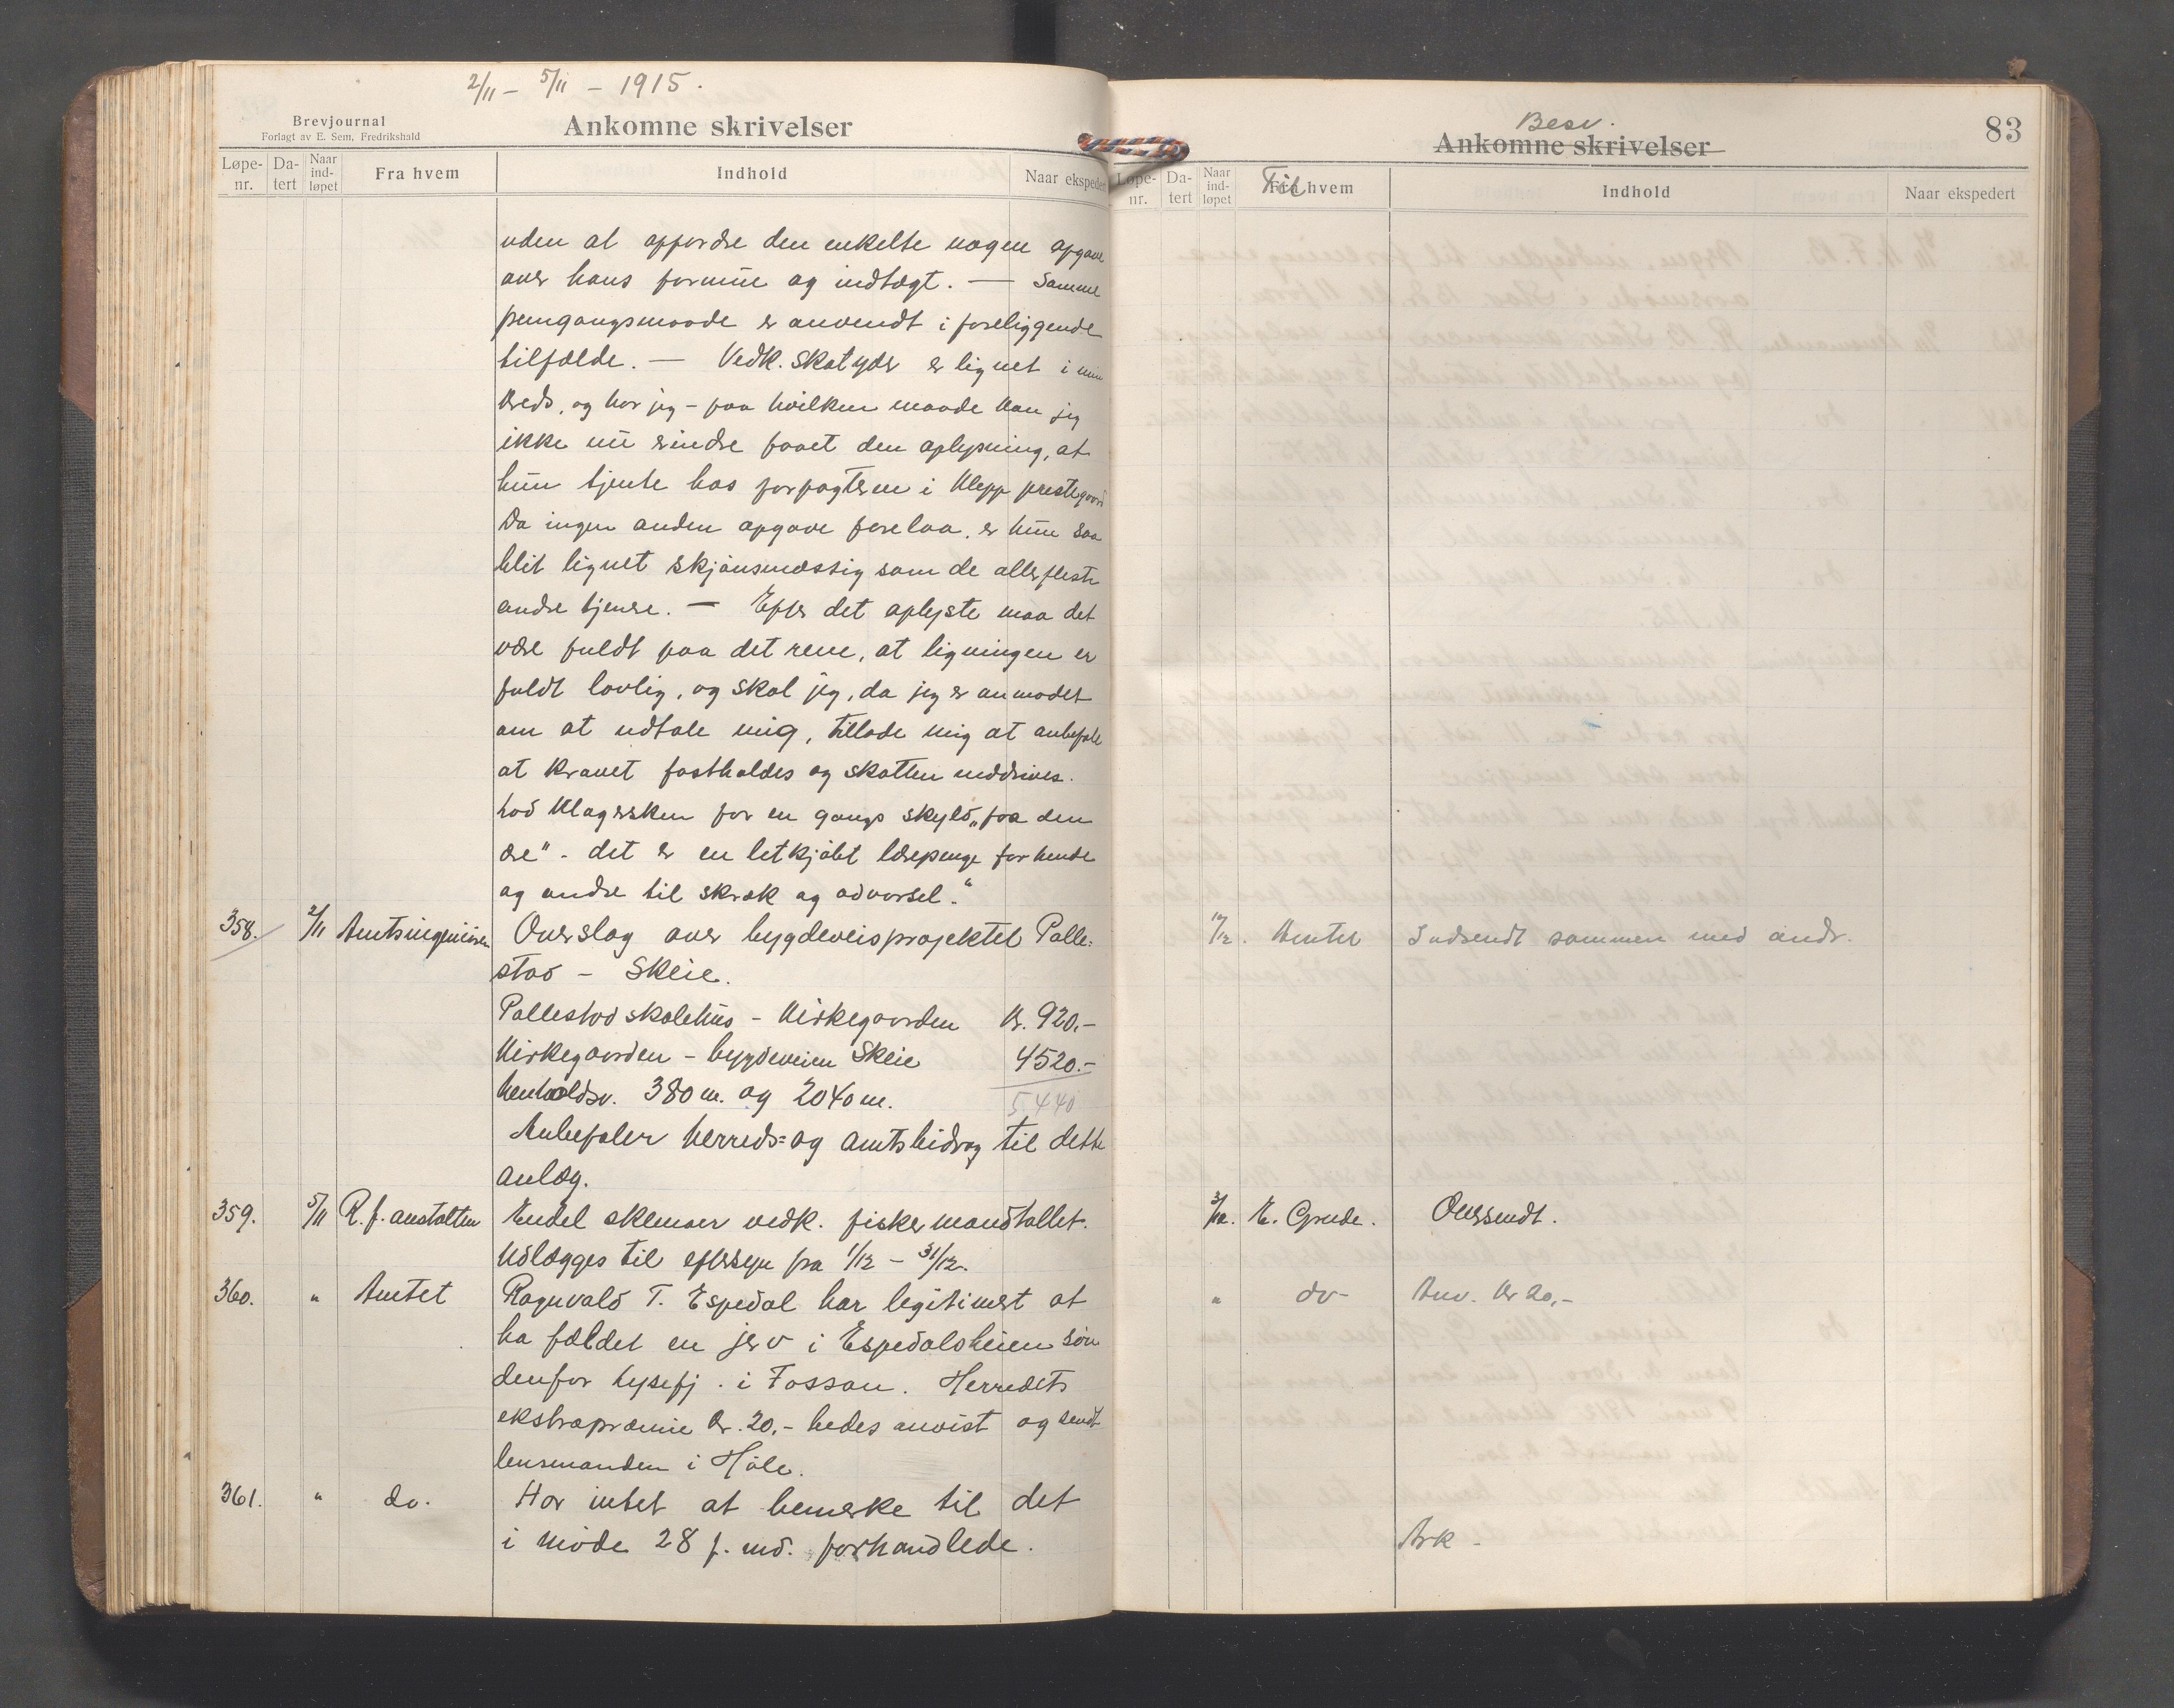 2/11 – 5/11 – 1915.
Brevjournal
Forlagt av E. Sem, Fredrikshald
Ankomne skrivelser
Løpe-nr. Da-tert Naar ind-løpet Fra hvem Indhold Naar ekspedert
uden at opfordre den enkelte nogen opgave
over hans formue og indtægt. — Samme
fremgangsmaade er anvendt i foreliggende
tilfælde. — Vedk. skatyder er lignet i min
kreds, og har jeg – paa hvilken maade kan jeg
ikke nu erindre faaet den oplysning, at
hun tjente hos forpagteren i Klepp prestegaard
Da ingen anden opgave forelaa, er hun saa
blit lignet skjønsmæssig som de allerfleste
andre tjenere. — Efter det oplyste maa det
være fuldt paa det rene, at ligningen er
fuldt lovlig, og skal jeg, da jeg er anmodet
om at udtale mig, tillade mig at anbefale
at kravet fastholdes og skatten inddrives.
Lad klagersken for en gangs skyld „faa den
ære" - det er en letkjøbt lærepenge for hende
og andre til skræk og advarsel."
358. 2/11 Amtsingeniøren Overslag over bygdeveisprojektet Palle-
stad – Skeie.
Pallestad skolehus – Kirkegaarden Kr. 920.–
Kirkegaarden – bygdeveien Skeie 4520.–
henholdsv. 380 m. og 2040 m. 5440
Anbefaler herreds= og amtsbidrag til dette
anlæg.
359. 5/11 R. f. anstalten Endel skemaer vedk. fiskermandtallet.
Udlægges til eftersyn fra 1/12 – 31/12.
360. " Amtet Ragnvald T. Espedal har legitimert at
ha fældet en jerv i Espedalsheien søn
denfor Lysefj. i Fossan. Herredets
ekstrapræmie Kr. 20,– bedes anvist og sendt
lensmanden i Høle.
361. " do. Har intet at bemerke til det
i møde 28 f. md. forhandlede.
83
Besv.
Ankomne skrivelser
Løpe-nr. Da-tert Naar ind-løpet Fra hvem Til Indhold Naar ekspedert
17/12. Amtet Indsendt sammen med andr.
3/12. E. Grude. Oversendt.
" do – Anv. Kr 20,–
Ark –